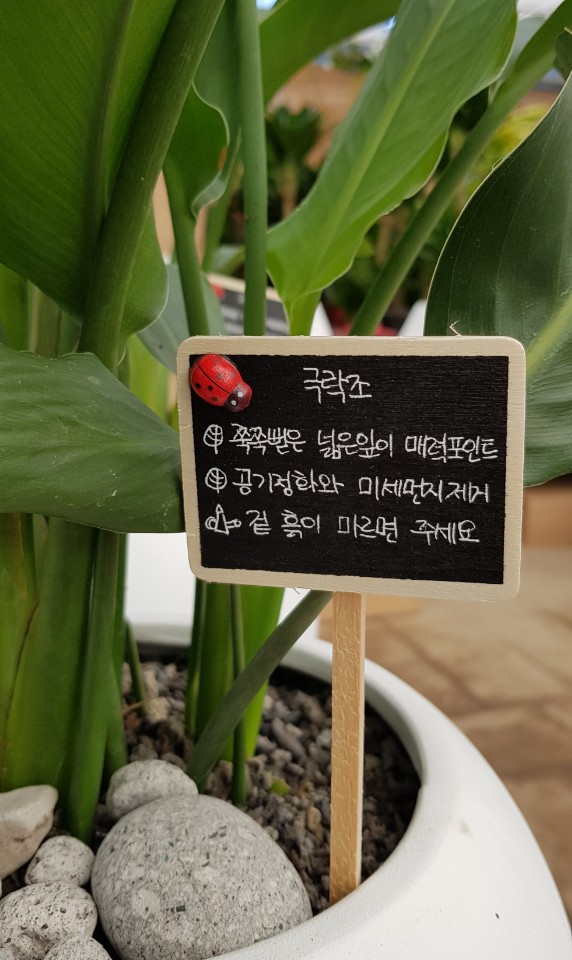 극락조
쭉쭉뻗은 넓은잎이 매력포인트
공기정화와 미세먼지제거
겉 흙이 마르면 주세요